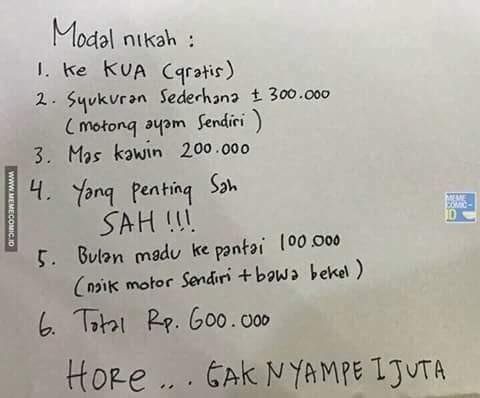 Modal nikah :
1. Ke KUA (gratis)
2. Syukuran Sederhana ± 300.000
(motong ayam Sendiri)
3. Mas kawin 200.000
4. Yang penting Sah
SAH !!!
5. Bulan madu ke pantai 100.000
(naik motor sendiri + bawa bekel)
6. Total Rp. 600.000
HORE ... GAK NYAMPE 1 JUTA
WWW.MEMECOMIC.ID
MEME
COMIC -
ID